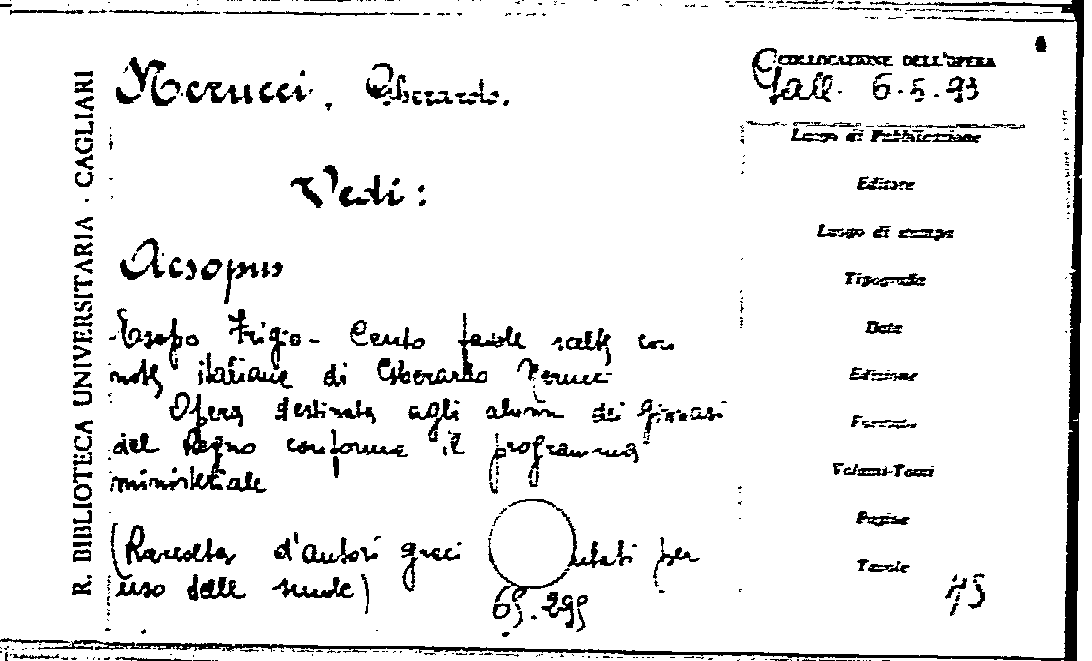 R. BIBLIOTECA UNIVERSITARIA - CAGLIARI
Nerucci, Gherardo.
Vedi:
Aesopus
Esopo Frigio - Cento favole scelte con
note italiane di Gherardo Nerucci
Opera destinata agli alunni dei ginnasi
del Regno conforme il programma
ministeriale
(Raccolta d'autori greci per
uso delle scuole)
69.299
COLLOCAZIONE DELL'OPERA
Gall. 6.5.93
Luogo di Pubblicazione
Editore
Luogo di stampa
Tipografia
Data
Edizione
Formato
Volumi-Tomi
Pagine
Tavole